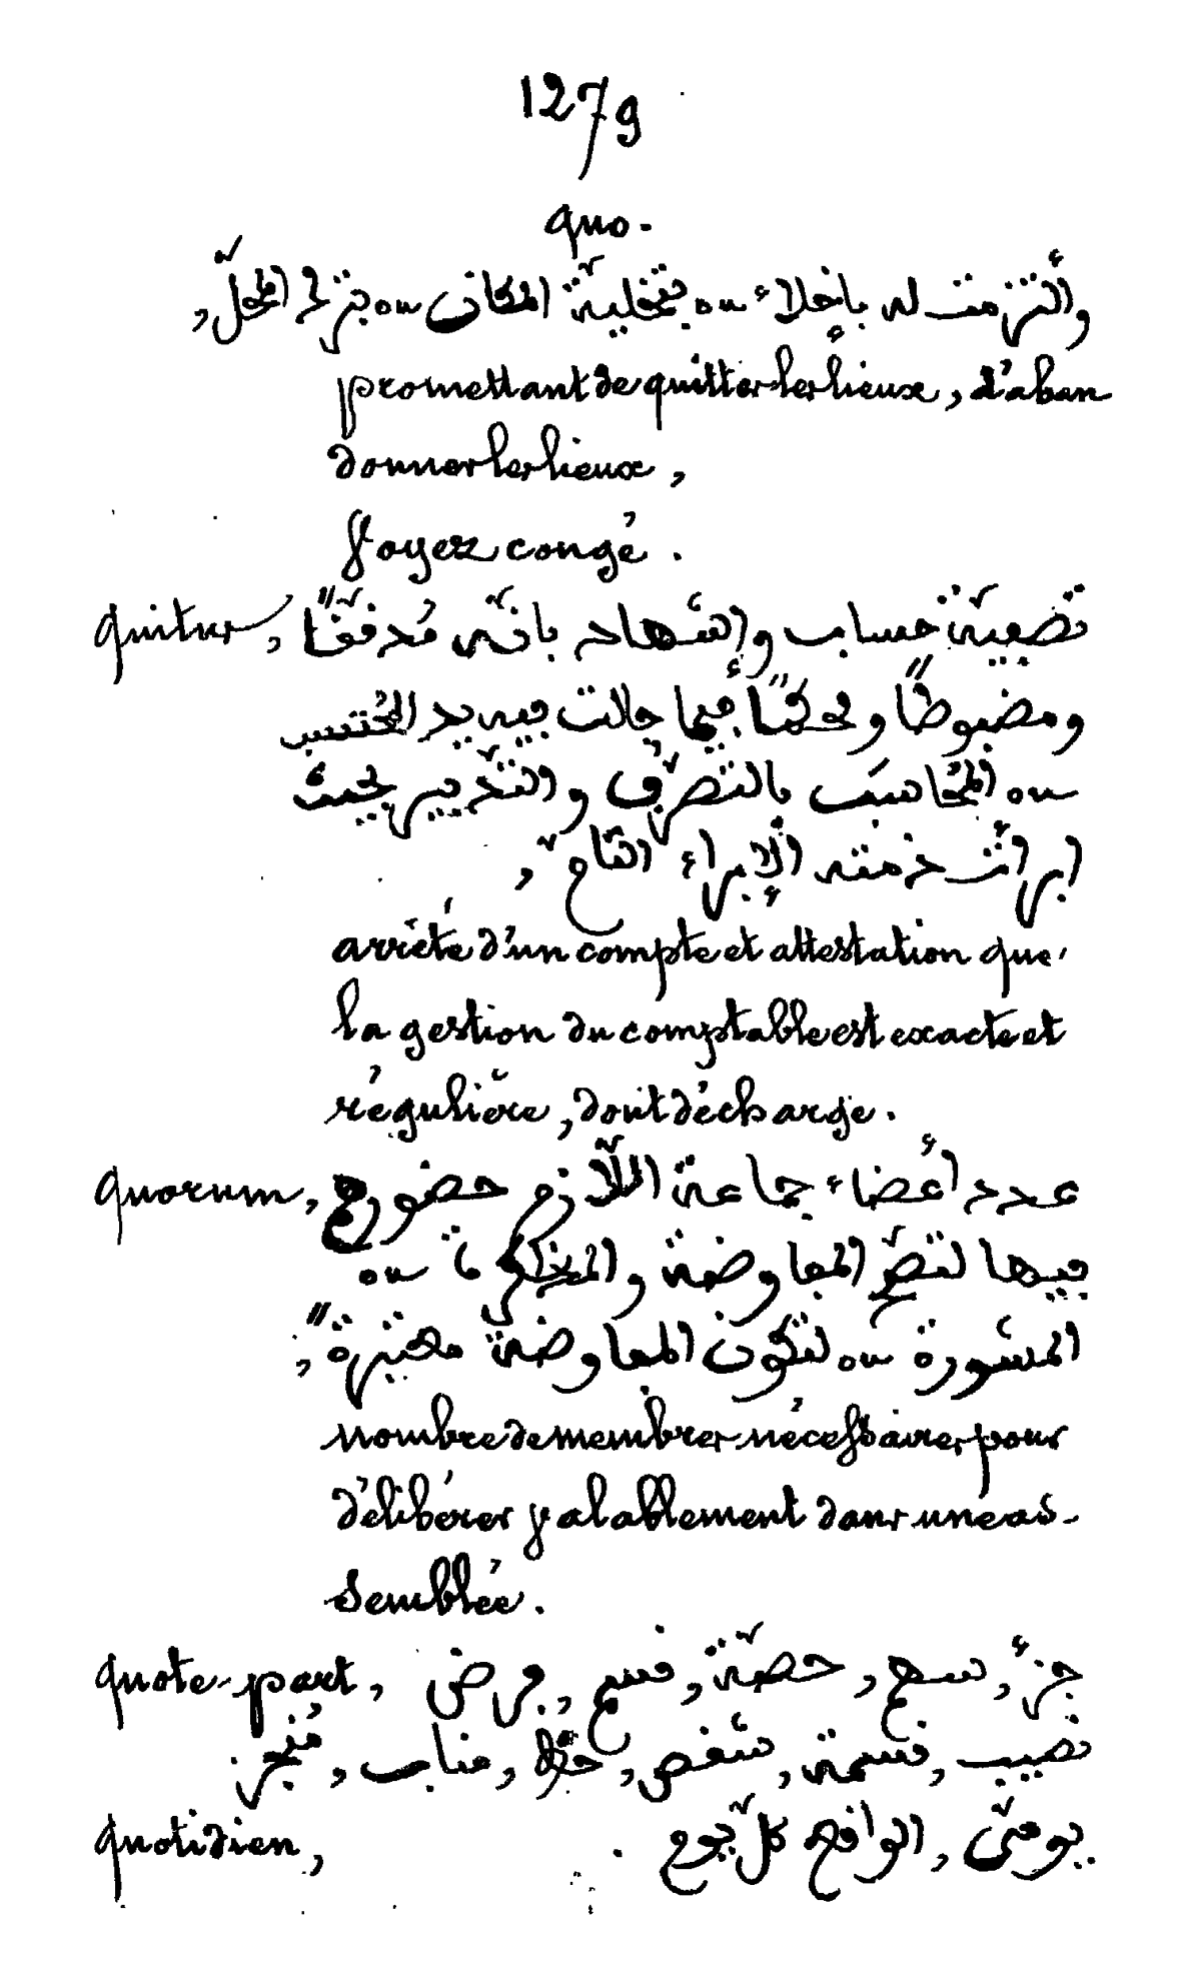 1279
quo.
وألتزمت له بإخلاء ou بتخليّة المكان ou بترك المحلّ,
promettant de quitter les lieux, d'aban
donner les lieux,
Voyez congé.
quitus, تصفيّة حساب وإشهاد بانّه مُدقّقًا
ومضبوطًا ومحكمًا فيما جالت فيه يد المُحتسب
ou المُحاسَب بالتصرّف والتدبير بحيث
ابرأت ذمّته الإبراء التامّ,
arrêté d'un compte et attestation que
la gestion du comptable est exacte et
régulière, dont décharge.
quorum, عدد أعضاء جماعة اللّازم حضورهم
فيها لتصحّ المفاوضة والمذاكرة ou
المشورة ou لتكون المفاوضة معتبرةً,
nombre de membres nécessaires pour
délibérer valablement dans une as-
semblée.
quote-part, جزءٌ, سهم, حصّة, قسم, فرض
نصيب, قسمة, شقص, حظّ, مناب,
quotidien, يوميّ, الواقع كلّ يوم.